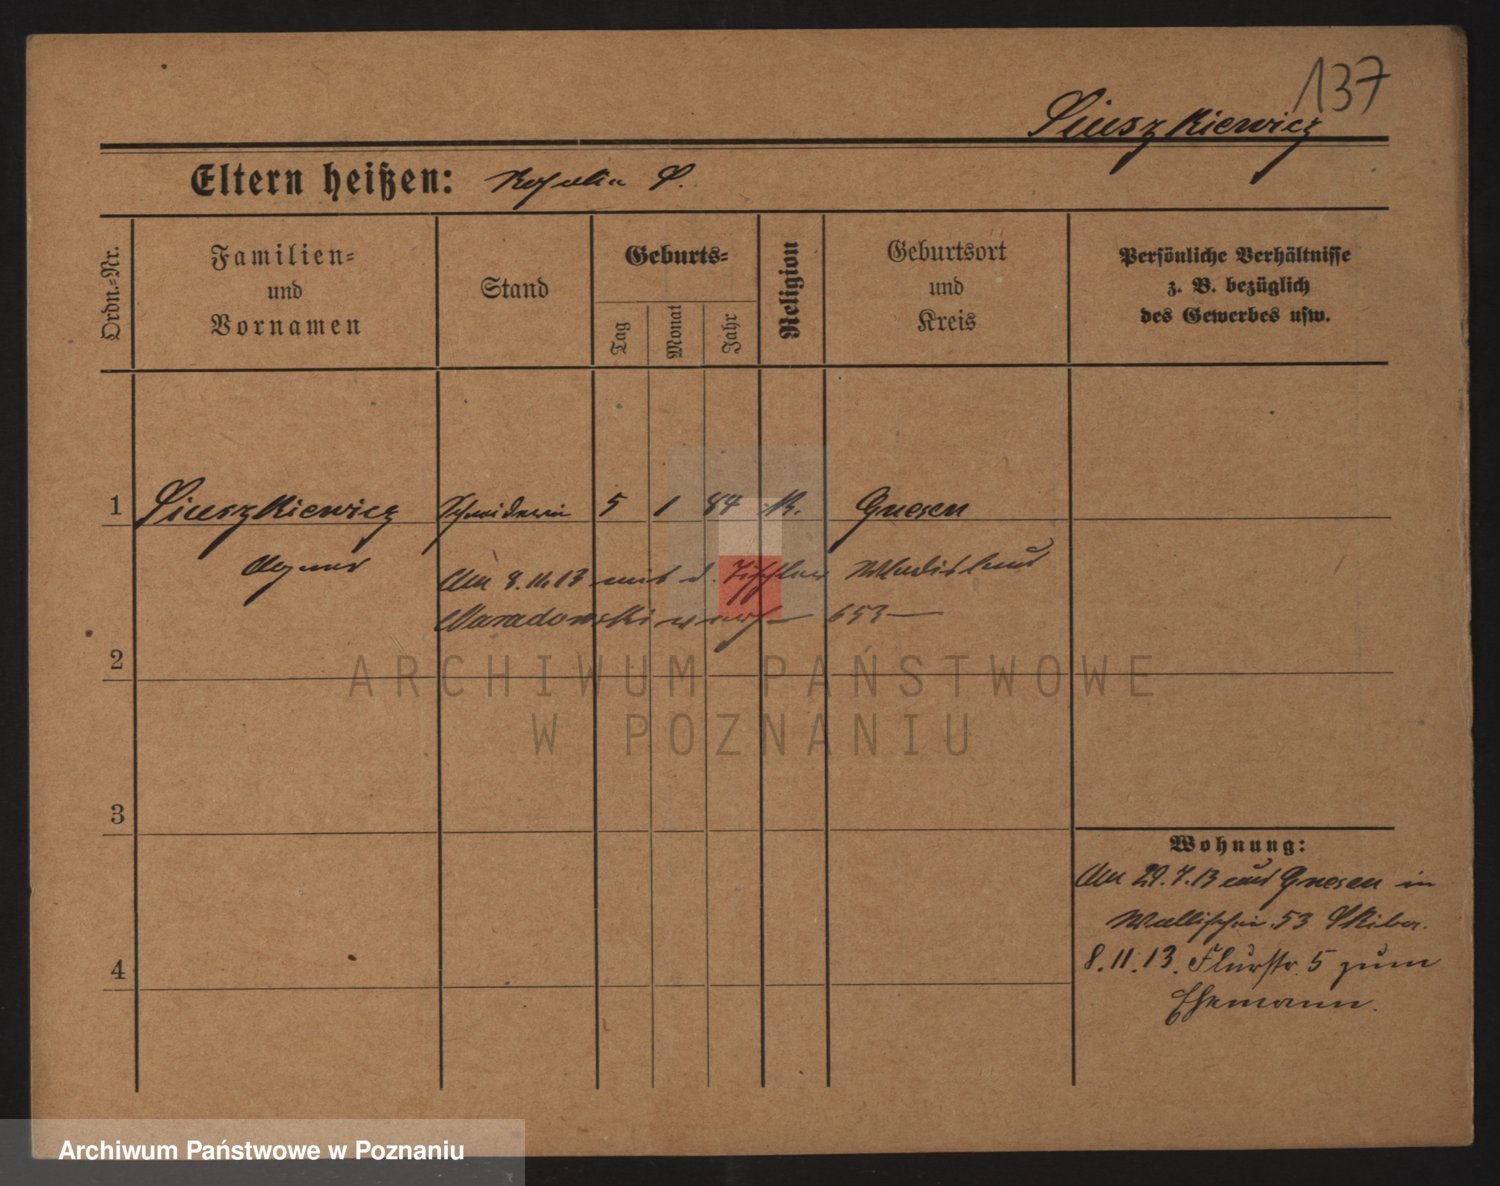 137
Siuszkiewicz
Eltern heißen: Rosalia S.
Ordn.=Nr.
Familien=
und
Vornamen
Stand
Geburts=
Tag
Monat
Jahr
Religion
Geburtsort
und
Kreis
Persönliche Verhältnisse
z. B. bezüglich
des Gewerbes usw.
1 Siuszkiewicz Schneiderin 5 1 84 K. Gnesen
Agnes
Am 8.11.13 mit d. Tischler Wladislaus
verh 653
2
3
4
Wohnung:
Am 29.7.13 aus Gnesen in
Wallischei 53 Skiba.
8.11.13. Flurstr. 5 zum
Ehemann.
ARCHIWUM PAŃSTWOWE
W POZNANIU
Archiwum Państwowe w Poznaniu